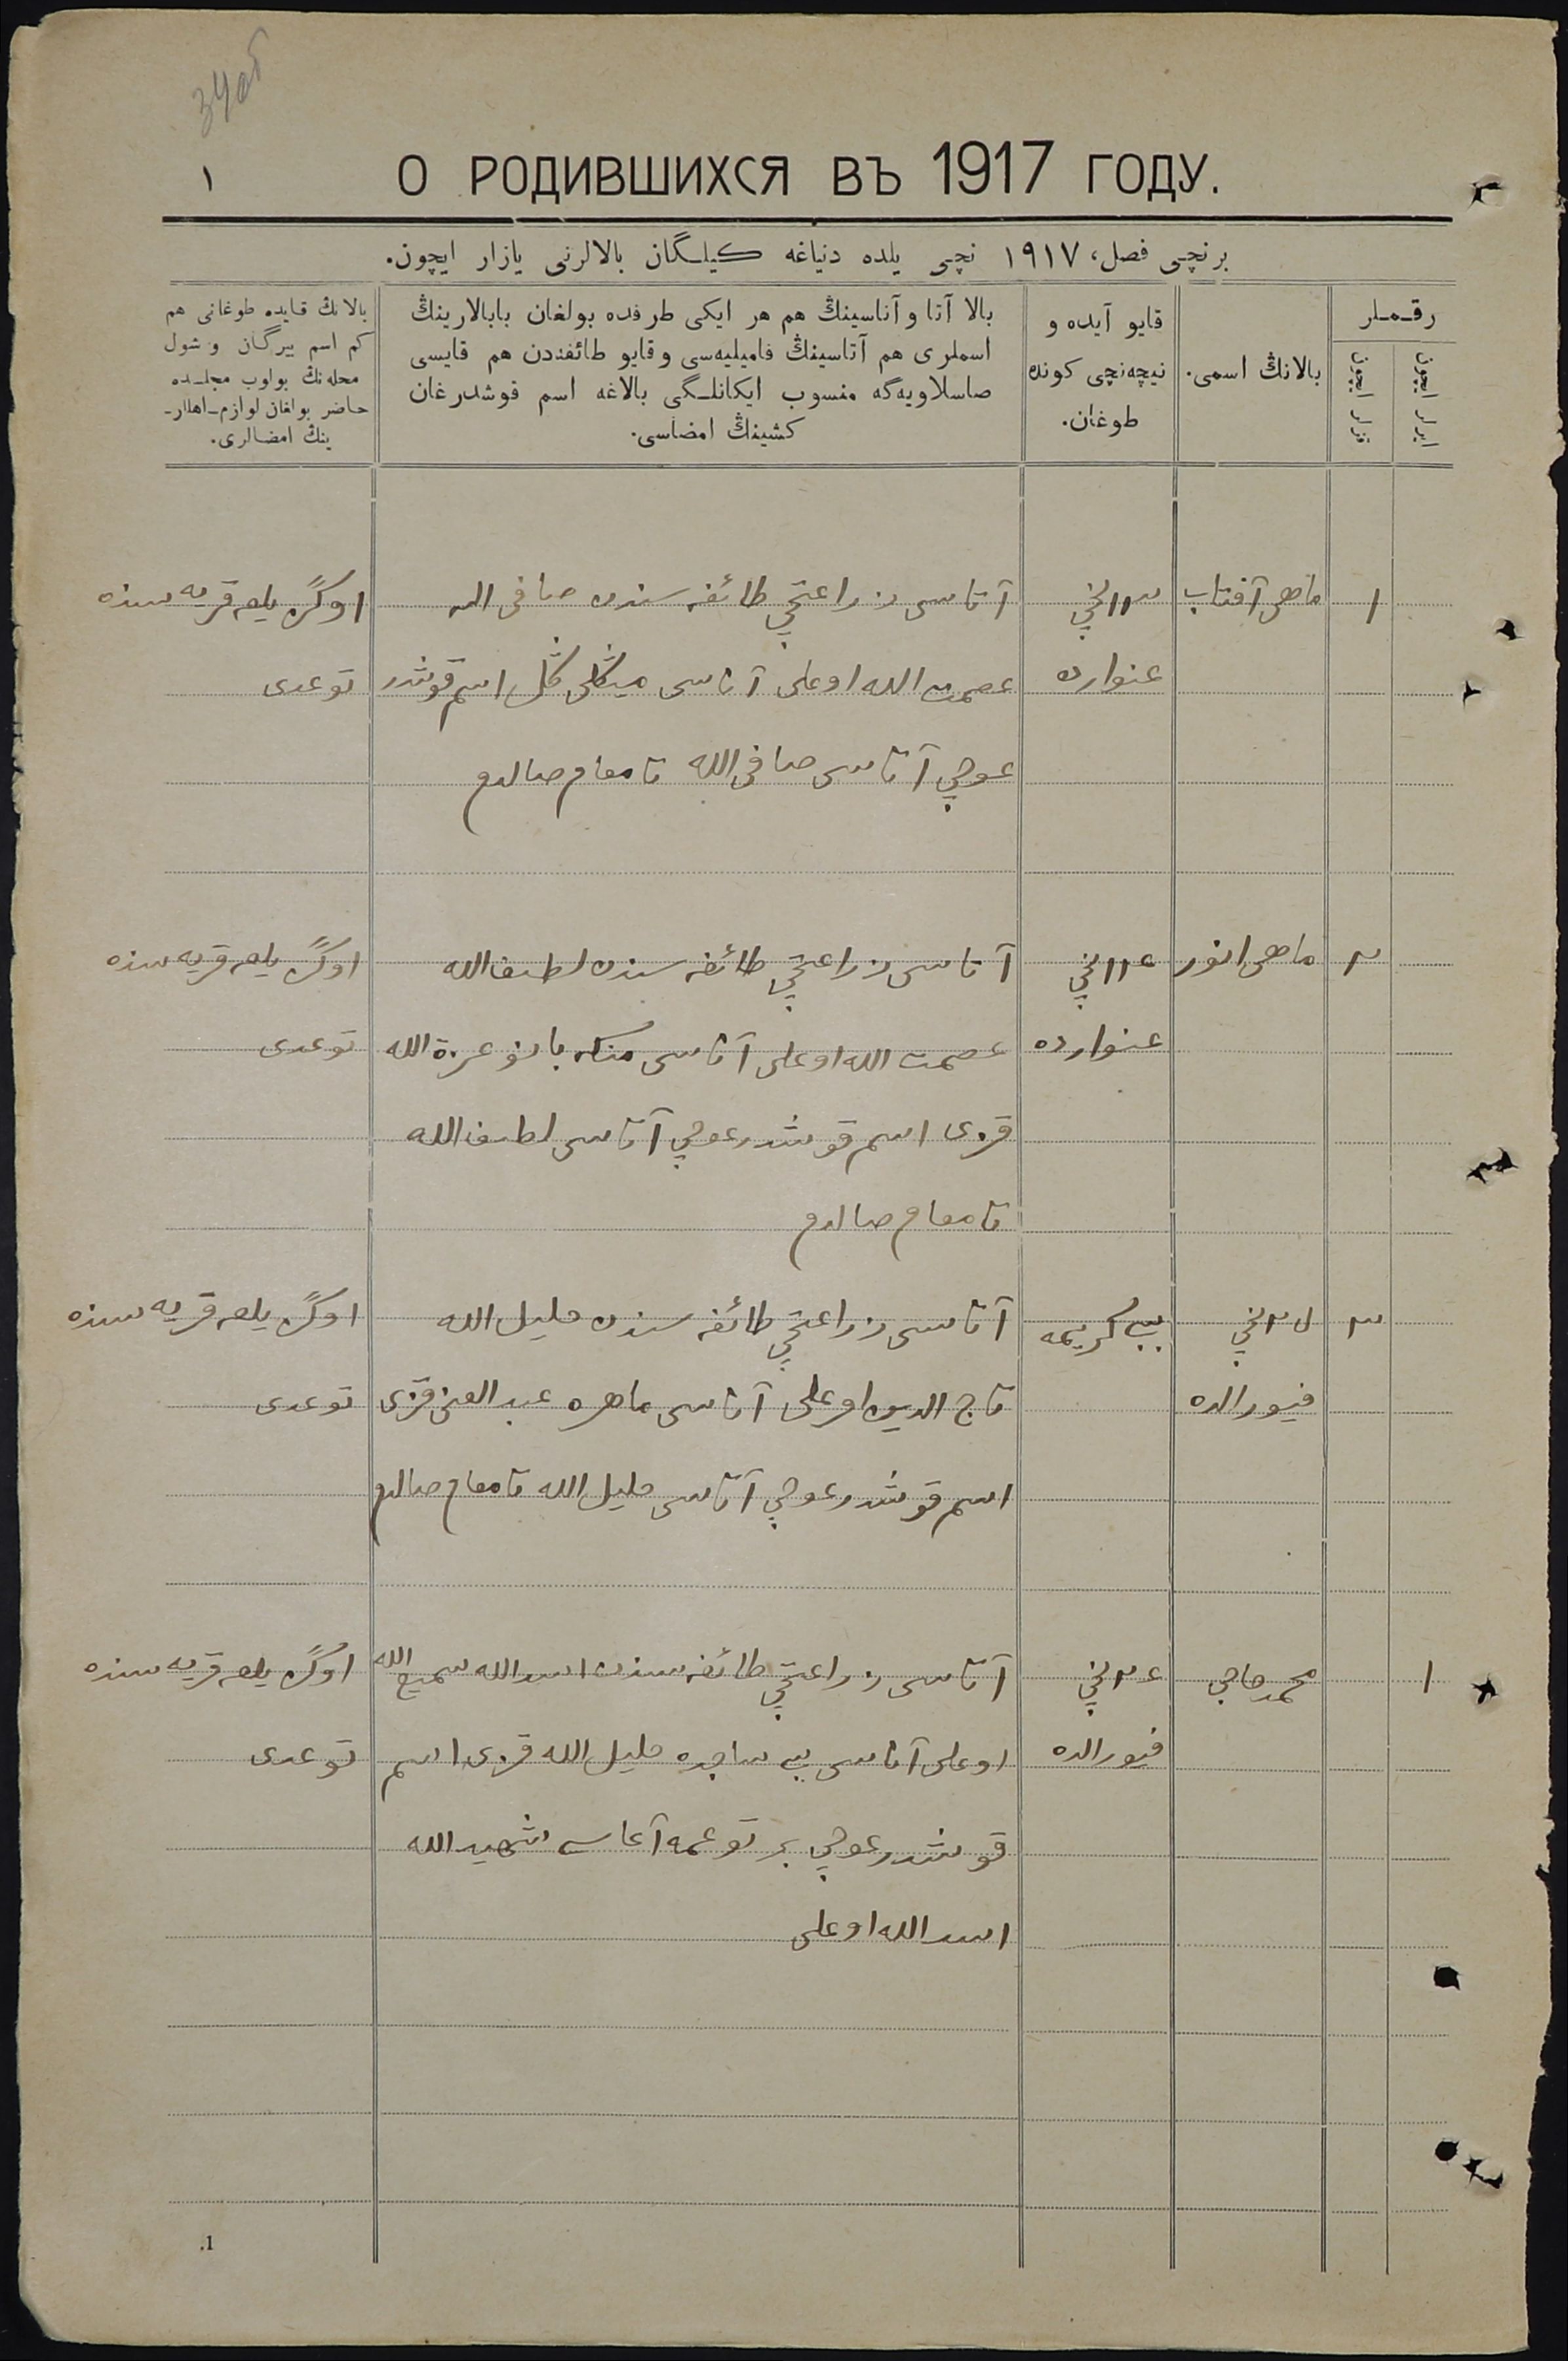 34об
О РОДИВШИХСЯ ВЪ 1917 ГОДУ.
١
برنچی فصل، ١٩١٧ نچی یلده دنیاغه کیلگان بالالرنی یازار ایچون.
رقملر
ایرلر ایچون
قزلر ایچون
بالانڭ اسمی.
قایو آیده و
نیچه‌نچی کونده
طوغان.
بالا آتا و آناسینڭ هم هر ایکی طرفده بولغان بابالارینڭ
اسملری هم آتاسینڭ فامیلیه‌سی و قایو طائفه‌دن هم قایسی
صاسلاویه‌گه منسوب ایکانلگی بالاغه اسم قوشدرغان
کشینڭ امضاسی.
بالانڭ قایده طوغانی هم
کم اسم بیرگان و شول
محله‌نڭ بولوب مجلسده
حاضر بولغان لوازم اهللار-
ینڭ امضالری.
١ ماهی آفتاب نچی آتاسی زراعتچی طائفه سندن صافی الله قریه سنده
عنوارده عصمت الله اوغلی آناسی اسم قوشدر توغدی
غوچی آتاسی صافی الله تامغام صالدم
٢ ماهی انور نچی آتاسی زراعتچی طائفه سندن لطیف الله قریه سنده
عنوارده عصمت الله اوغلی آناسی بانو عزة الله توغدی
قزی اسم قوشدرغوچی آتاسی لطیف الله
تامغام صالدم
٣ نچی بیبی کریمه آتاسی زراعتچی طائفه سندن خلیل الله قریه سنده
فیورالده تاج الدین اوغلی آناسی ماهره عبد الغنی قزی توغدی
اسم قوشدرغوچی آتاسی خلیل الله تامغام صالدم
١ محمد حاجی نچی آتاسی زراعتچی طائفه سندن اسد الله سمیع الله قریه سنده
فیورالده اوغلی آناسی بیبی ساجده خلیل الله قزی اسم توغدی
قوشدرغوچی بر توغمه آغاسی شهید الله
اسد الله اوغلی
1.